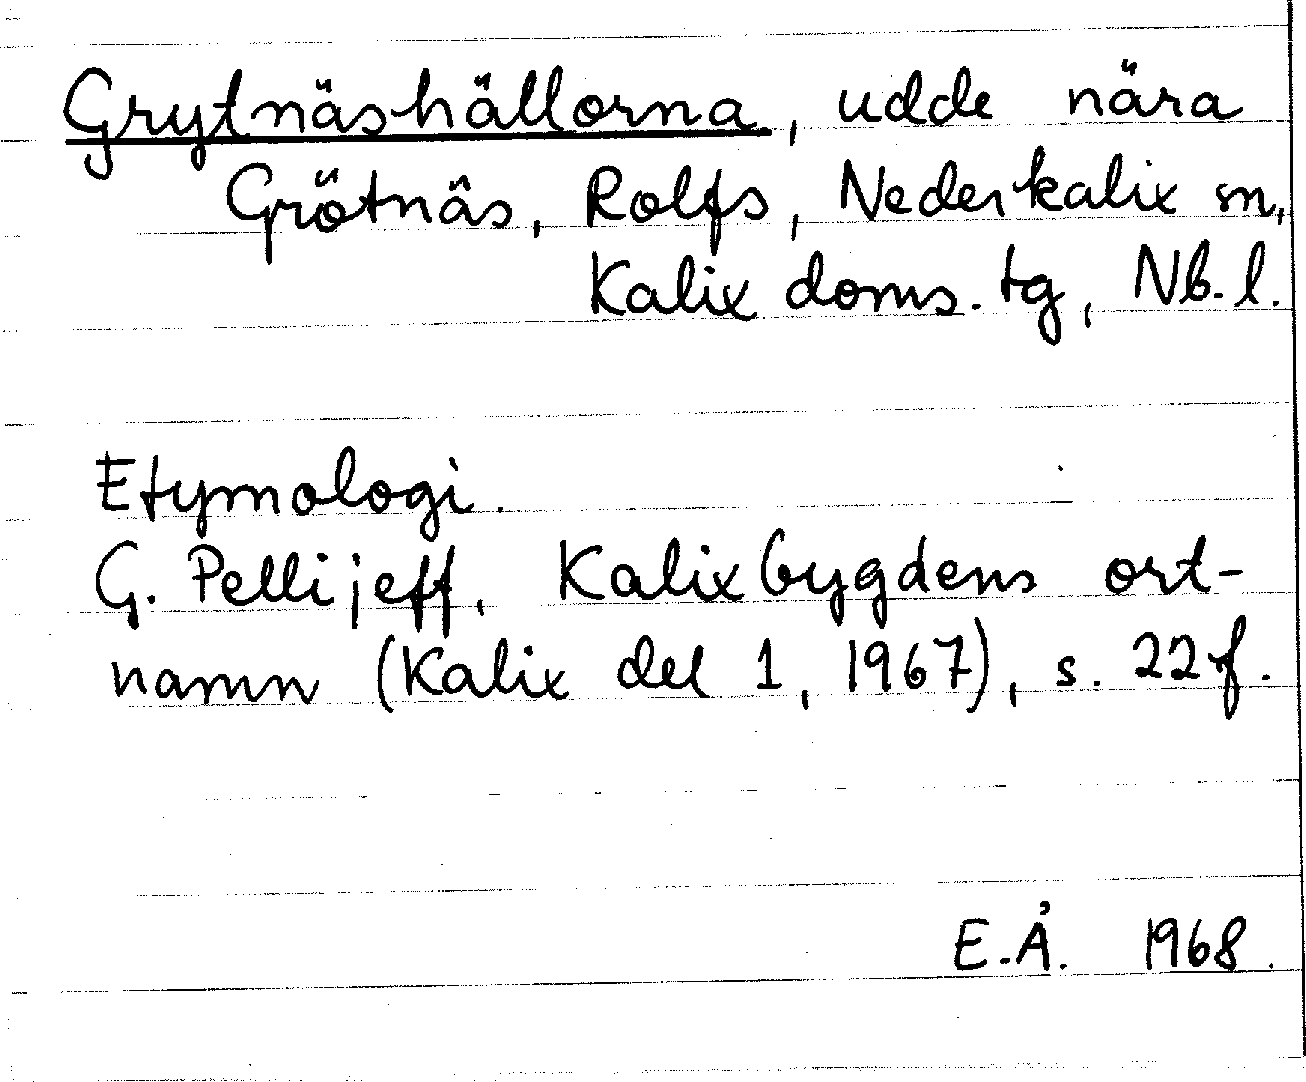 Grytnäshällorna, udde nära
Grötnäs, Rolfs, Nederkalix sn,
Kalix doms. tg, Nb. l.
Etymologi.
G. Pellijeff, Kalixbygdens ort-
namn (Kalix del 1, 1967), s. 22 f.
E.Å. 1968.